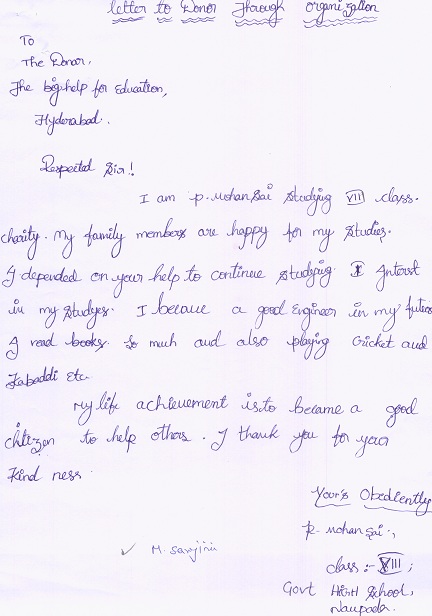 letter to Donor Through organization
To
The Donor,
The big help for Education,
Hyderabad.
Respected Sir!
I am P. Mohan Sai Studying VII class.
charity. My family members are happy for my Studies.
I depended on your help to continue Studying. I Intrest
in my Studyes. I became a good Engineer in my future
I read books so much and also playing Cricket and
Kabaddi Etc.
My life achievement is to became a good
chitizen to help others. I thank you for your
kind ness.
Your's Obediently
P. Mohan Sai,
M. Sarojini
class :- VIII ;
Govt High School,
Naupada.